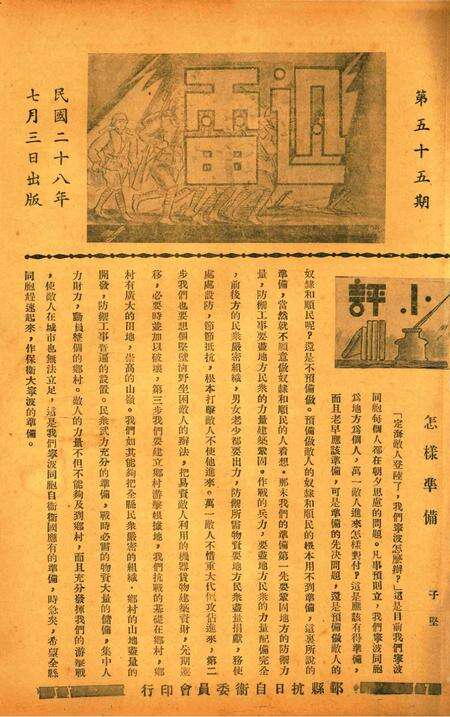 第五十五期
迅雷
民國二十八年
七月三日出版
小評
怎樣準備　子堅
「定海敵人登陸了，我們寧波怎麼辦？」這是目前我們寧波
同胞每個人都在朝夕思慮的問題。凡事預則立，我們寧波同胞
爲地方爲個人，萬一敵人進來怎樣對付？這是應該有得準備，
而且老早應該準備，可是準備的先決問題，還是預備做敵人的
奴隸和順民呢？還是不預備做。預備做敵人的奴隸和順民的根本用不到準備，這裏所說的
準備，當然就不願意做奴隸和順民的人着想。那末我們的準備第一先要鞏固地方的防禦力
量，防禦工事要盡地方民衆的力量建築鞏固。作戰的兵力，要盡地方民衆的力量配備完全
，前後方的民衆嚴密組織，男女老少都要出力，防禦所需物資要地方民衆盡量捐獻，務使
處處設防，節節抵抗，根本打擊敵人不使他進來。萬一敵人不惜重大代價攻佔進來，第二
步我們也要想個堅壁清野坐困敵人的辦法，把易資敵人利用的機器貨物建築資財，先期遷
移，必要時並加以破壞，第三步我們要建立鄉村游擊根據地，我們抗戰的基礎在鄉村，鄉
村有廣大的田地，崇高的山嶺。我們如其能夠把全縣民衆嚴密的組織，鄉村的山地盡量的
開發，防禦工事普遍的設置。民衆武力充分的準備，戰時必需的物資大量的儲備，集中人
力財力，動員整個的鄉村。敵人的力量不但不能夠及到鄉村，而且充分發揮我們的游擊戰
，使敵人在城市也無法立足，這是我們寧波同胞自衛衛國應有的準備，時急矣，希望全縣
同胞趕速起來，作保衛大寧波的準備。
鄞縣抗日自衛委員會印行